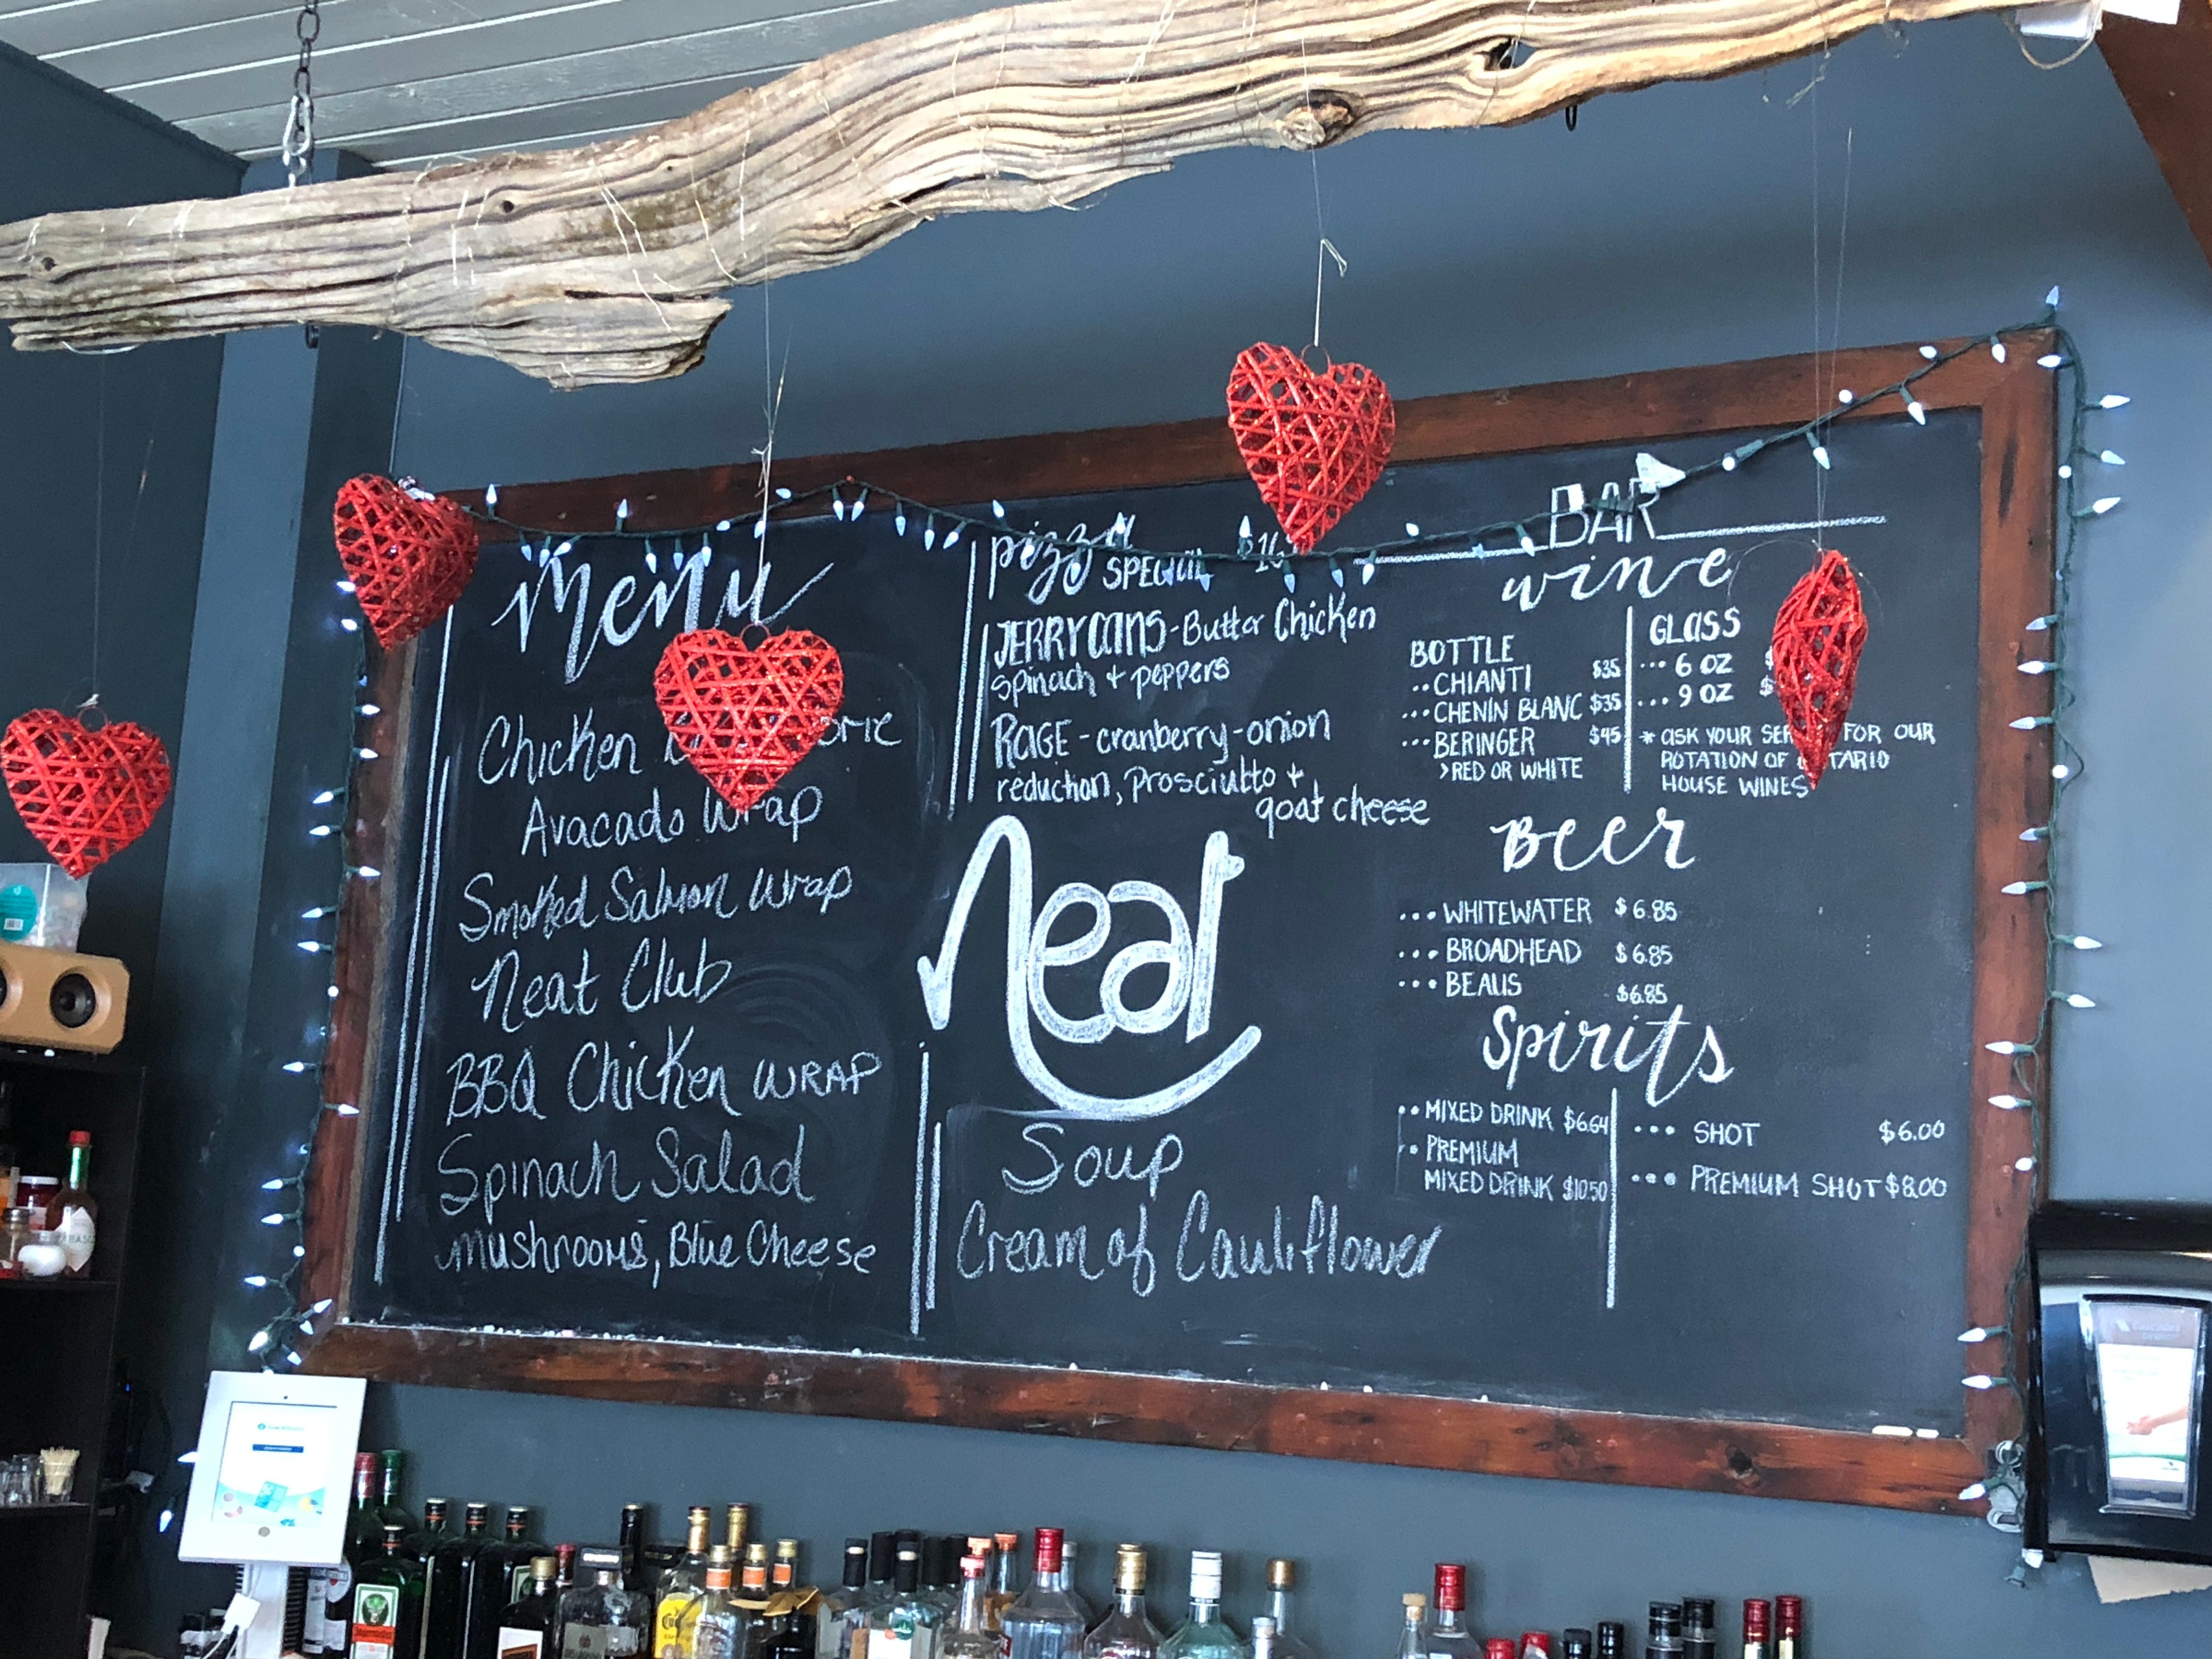 Menu
Chicken
Avacado Wrap
Smoked Salmon Wrap
Neat Club
BBQ Chicken WRAP
Spinach Salad
mushrooms, Blue Cheese
pizza
SPECIAL
JERRYCANS - Butter Chicken
spinach + peppers
RAGE - cranberry-onion
reduction, prosciutto +
goat cheese
neat
Soup
Cream of Cauliflower
BAR
wine
BOTTLE
•• CHIANTI $35
••• CHENIN BLANC $35
••• BERINGER $45
>RED OR WHITE
GLASS
••• 6 OZ
••• 9 OZ
* ASK YOUR FOR OUR
ROTATION OF
HOUSE WINES
Beer
••• WHITEWATER $6.85
••• BROADHEAD $6.85
••• BEAUS $6.85
Spirits
•• MIXED DRINK $6.64
•• PREMIUM
MIXED DRINK $10.50
••• SHOT $6.00
••• PREMIUM SHOT $8.00